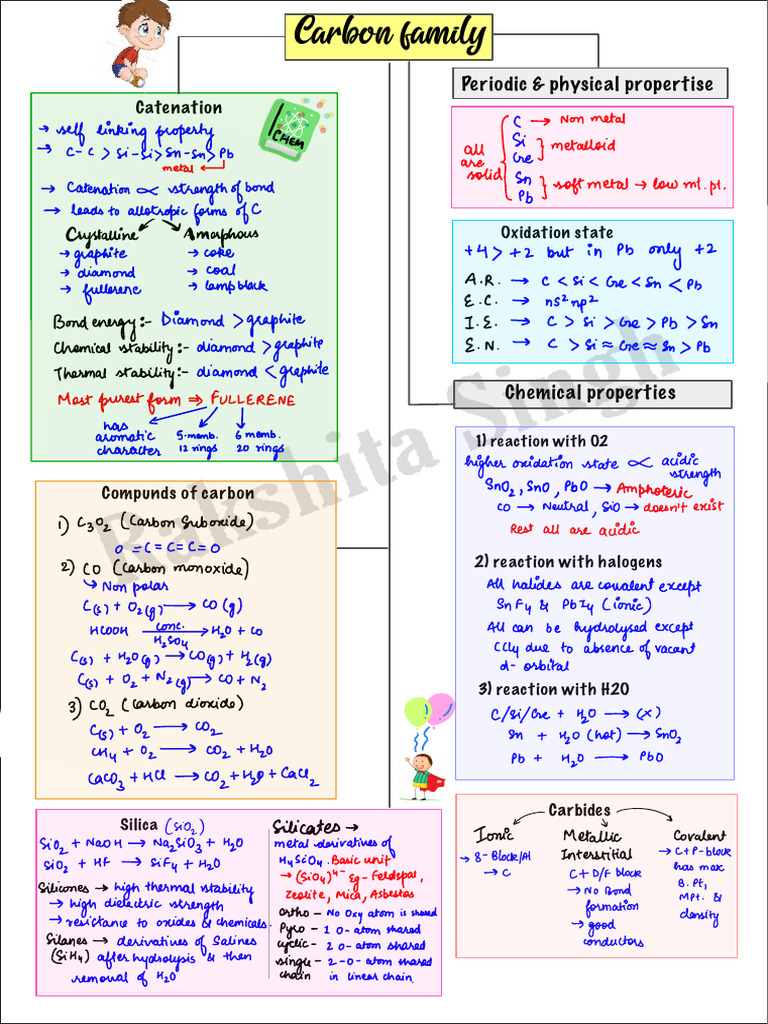 Carbon family
Catenation
→ self linking property
→ C-C > Si-Si > Sn-Sn > Pb
metal
→ Catenation ∝ strength of bond
→ leads to allotropic forms of C
Crystalline
→ graphite
→ diamond
→ fullerene
Amorphous
→ coke
→ coal
→ lampblack
Bond energy:- Diamond > graphite
Chemical stability:- diamond > graphite
Thermal stability:- diamond < graphite
Most purest form ⇒ FULLERENE
has
aromatic
character
5-memb.
12 rings
6 memb.
20 rings
CHEM
Periodic & physical propertise
all
are
solid
C → Non metal
Si
Ge
metalloid
Sn
Pb
soft metal → low mt. pt.
Oxidation state
+4 > +2 but in Pb only +2
A.R. → C < Si < Ge < Sn < Pb
E.C. → ns²np²
I.E. → C > Si > Ge > Pb > Sn
E.N. → C > Si ≈ Ge ≈ Sn > Pb
Chemical properties
1) reaction with O2
higher oxidation state ∝ acidic
strength
SnO₂, SnO, PbO → Amphoteric
CO → Neutral, SiO → doesn't exist
Rest all are acidic
2) reaction with halogens
All halides are covalent except
SnF₄ & PbI₄ (ionic)
All can be hydrolysed except
CCl₄ due to absence of vacant
d-orbital
3) reaction with H2O
C/Si/Ge + H₂O → (X)
Sn + H₂O (hot) → SnO₂
Pb + H₂O → PbO
Compunds of carbon
1) C₃O₂ (Carbon Suboxide)
O=C=C=C=O
2) CO (Carbon monoxide)
↳ Non polar
C(s) + O₂(g) → CO (g)
HCOOH conc. H₂SO₄ → H₂O + CO
C(s) + H₂O(g) → CO(g) + H₂(g)
C(s) + O₂ + N₂(g) → CO + N₂
3) CO₂ (Carbon dioxide)
C(s) + O₂ → CO₂
CH₄ + O₂ → CO₂ + H₂O
CaCO₃ + HCl → CO₂ + H₂O + CaCl₂
Silica (SiO₂)
SiO₂ + NaOH → Na₂SiO₃ + H₂O
SiO₂ + Hf → SiF₄ + H₂O
Silicones → high thermal stability
→ high dielectric strength
→ resistance to oxides & chemicals.
Silanes → derivatives of Salines
(SiH₄) after hydrolysis & then
removal of H₂O
Silicates →
metal derivatives of
H₄SiO₄. Basic unit
→ (SiO₄)⁴⁻ Eg- Feldspal,
Zeolite, Mica, Asbestas
ortho - No Oxy atom is shared
Pyro - 1 O-atom shared
cyclic - 2 O-atom shared
single - 2-O-atom shared
chain in linear chain.
Carbides
Ionic
→ S-Block/Al
→ C
Metallic
Interstitial
C + D/F block
→ No Bond
formation
→ good
conductors
Covalent
→ C + P-block
has max
B.Pt,
M.Pt. &
density
Rakshita Singh